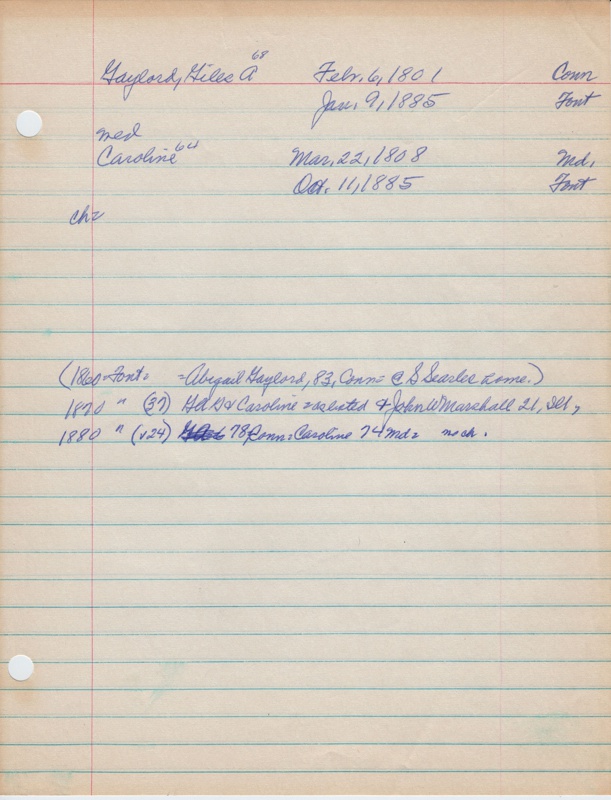 Gaylord, Giles A 68 Febr. 6, 1801 Conn
Jan. 9, 1885 Font
med
Caroline 64 Mar. 22, 1808 Md.
Oct. 11, 1885 Font
ch=
(1860=Font= =Abigail Gaylord, 83, Conn= @ S Searles home.)
1870 " (37) & Caroline = & John W Marshall 21, Ill,
1880 " (v24) 78 Conn= Caroline 74 Md= no ch.